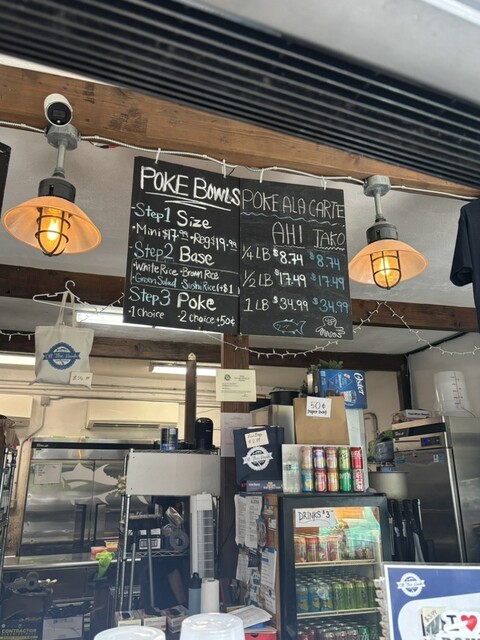 POKE BOWLS
Step 1 Size
•Mini $17.99 •Reg $19.99
Step 2 Base
•White Rice •Brown Rice
•Green Salad Sushi Rice(+$1)
Step 3 Poke
•1 choice •2 choice +50¢
POKE ALA CARTE
AHI TAKO
1/4 LB $8.74 $8.74
1/2 LB $17.49 $17.49
1 LB $34.99 $34.99
Off The Hook
Oster
50¢
DRINKS $3
CONTRACTOR
I ❤